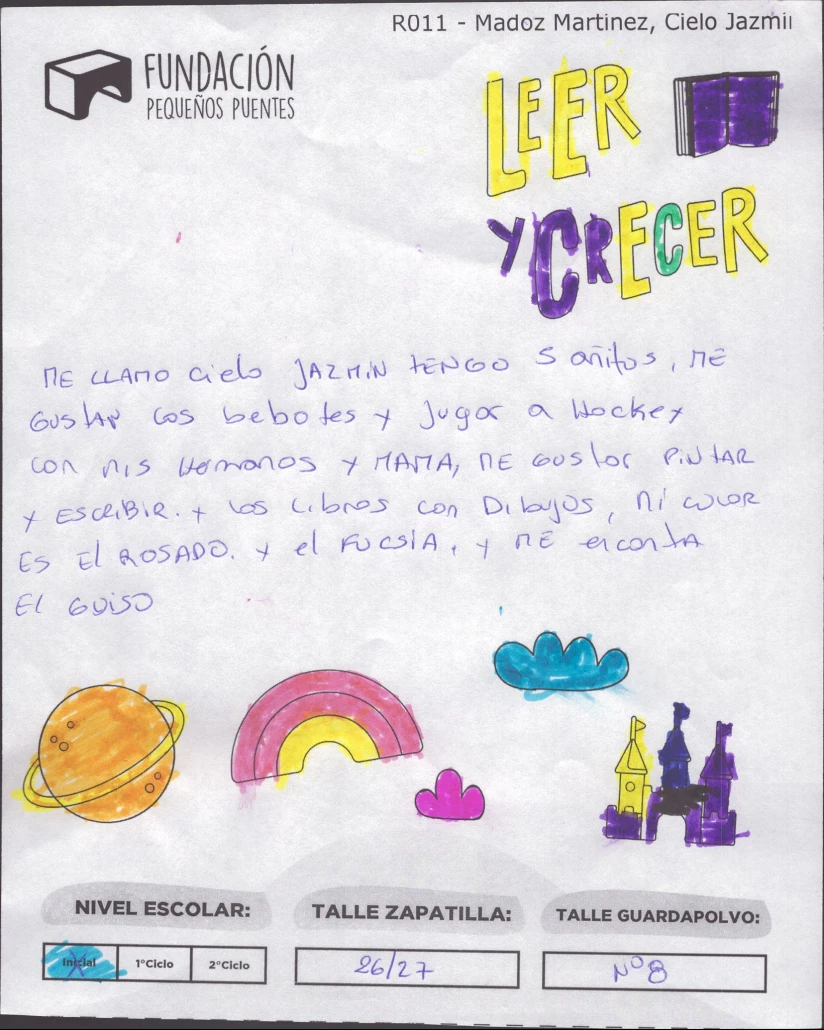 R011 - Madoz Martinez, Cielo Jazmi
FUNDACIÓN
PEQUEÑOS PUENTES
LEER
Y CRECER
ME LLAMO Cielo JAZMIN TENGO 5 añitos, ME
GUSTAN LOS bebotes y Jugar a Hockey
con mis Hermanos y MAMA, ME GUSTAR PINTAR
y ESCRIBIR. y LOS LIBROS con Dibujos, Mi COLOR
ES El ROSADO. y el FUCSIA, y ME encanta
El GUISO
NIVEL ESCOLAR:
TALLE ZAPATILLA:
TALLE GUARDAPOLVO:
Inicial
1°Ciclo
2°Ciclo
26/27
N°8